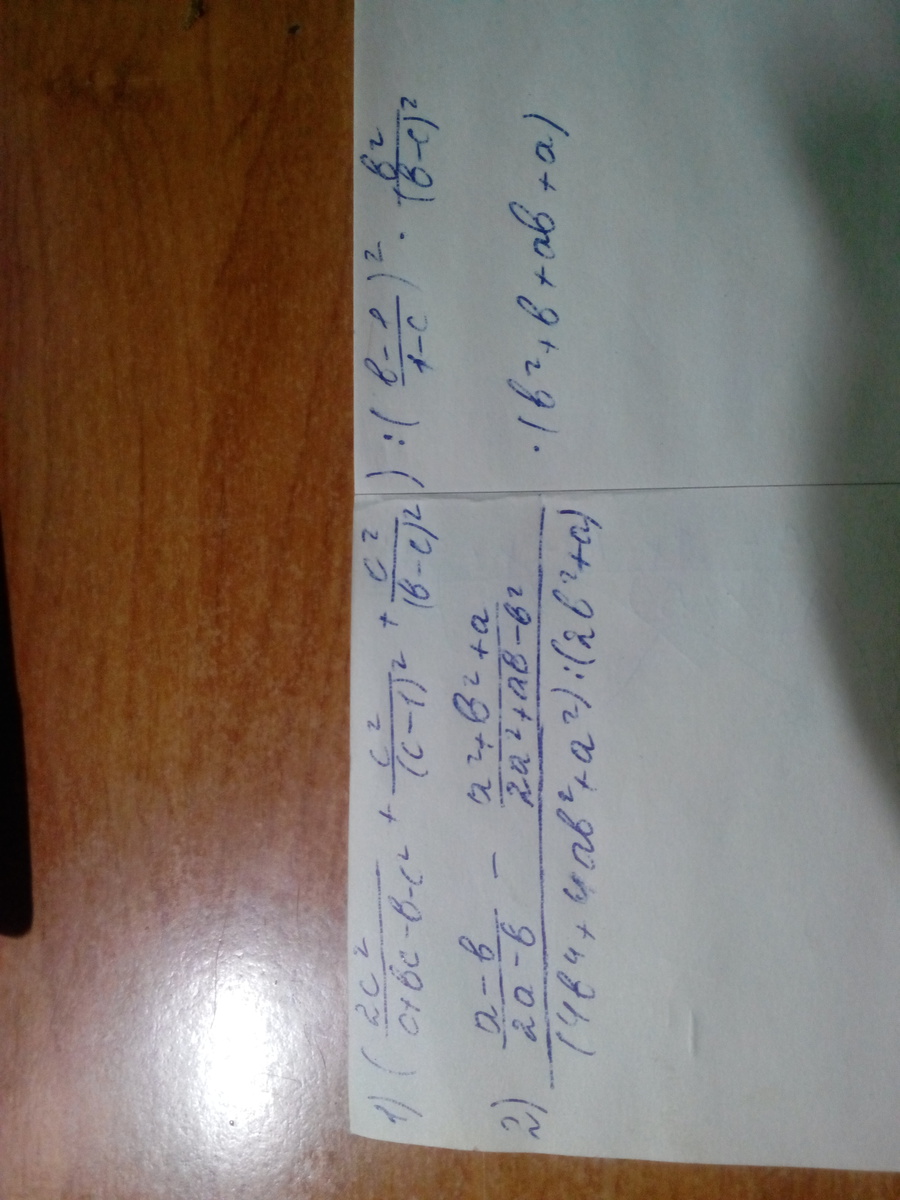 1) (2c²/(c+bc-b-c²) + c²/(c-1)² + c²/(b-c)²) : ((b-1)/(1-c))² · b²/(b-c)²
2) ((a-b)/(2a-b) - (a²+b²+a)/(2a²+ab-b²)) / ((4b⁴+4ab²+a²):(2b²+a)) · (b²+b+ab+a)